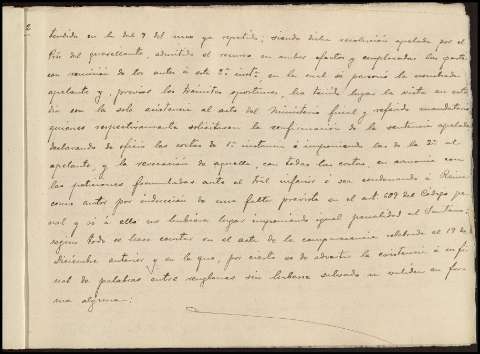 2
tendida en la del 9 del mes ya repetido; siendo dicha resolución apelada por el
Pror del querellante, admitido el recurso en ambos efectos y emplazadas las partes
con remisión de los autos á este 2ª insta, en la cual se personó la nombrada
apelante y, previos los trámites oportunos, ha tenido lugar la vista en este
día con la sola asistencia al acto del Ministerio fiscal y referido mandatario
quienes respectivamente solicitaron la confirmación de la sentencia apelada
declarando de oficio las costas de 1ª instancia é imponiendo las de la 2ª al
apelante, y la revocación de aquella, con todas las costas, en armonía con
las peticiones formuladas ante el Tral inferior ó sea condenando á
como autor por inducción de una falta prevista en el art. 609 del Código pe-
nal y si á ello no hubiera lugar imponiendo igual penalidad al Santana;
segun todo se hace constar en el acta de la comparecencia celebrada el 19 de
Diciembre anterior y en la que, por cierto es de advertir la existencia á su fi-
nal de palabras entre renglones sin haberse salvado su validez en for-
ma alguna: